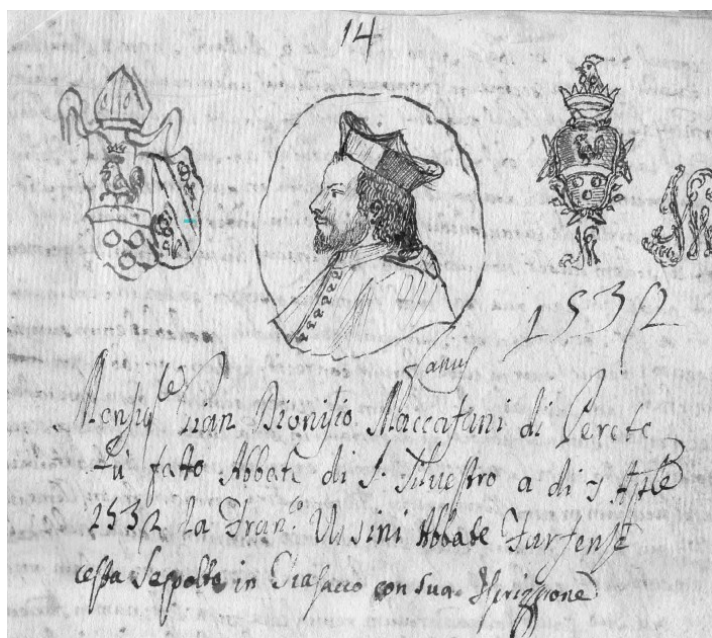 14
1532
anus
Monsig.le Gian Dionisio Maccafani di Pereto
Fù fatto Abbate di S. Silvestro a di 7 Aple
1532 da Fran.co Ursini Abbate Farfense
resta Sepolto in Trasacco con sua Iscrizzione